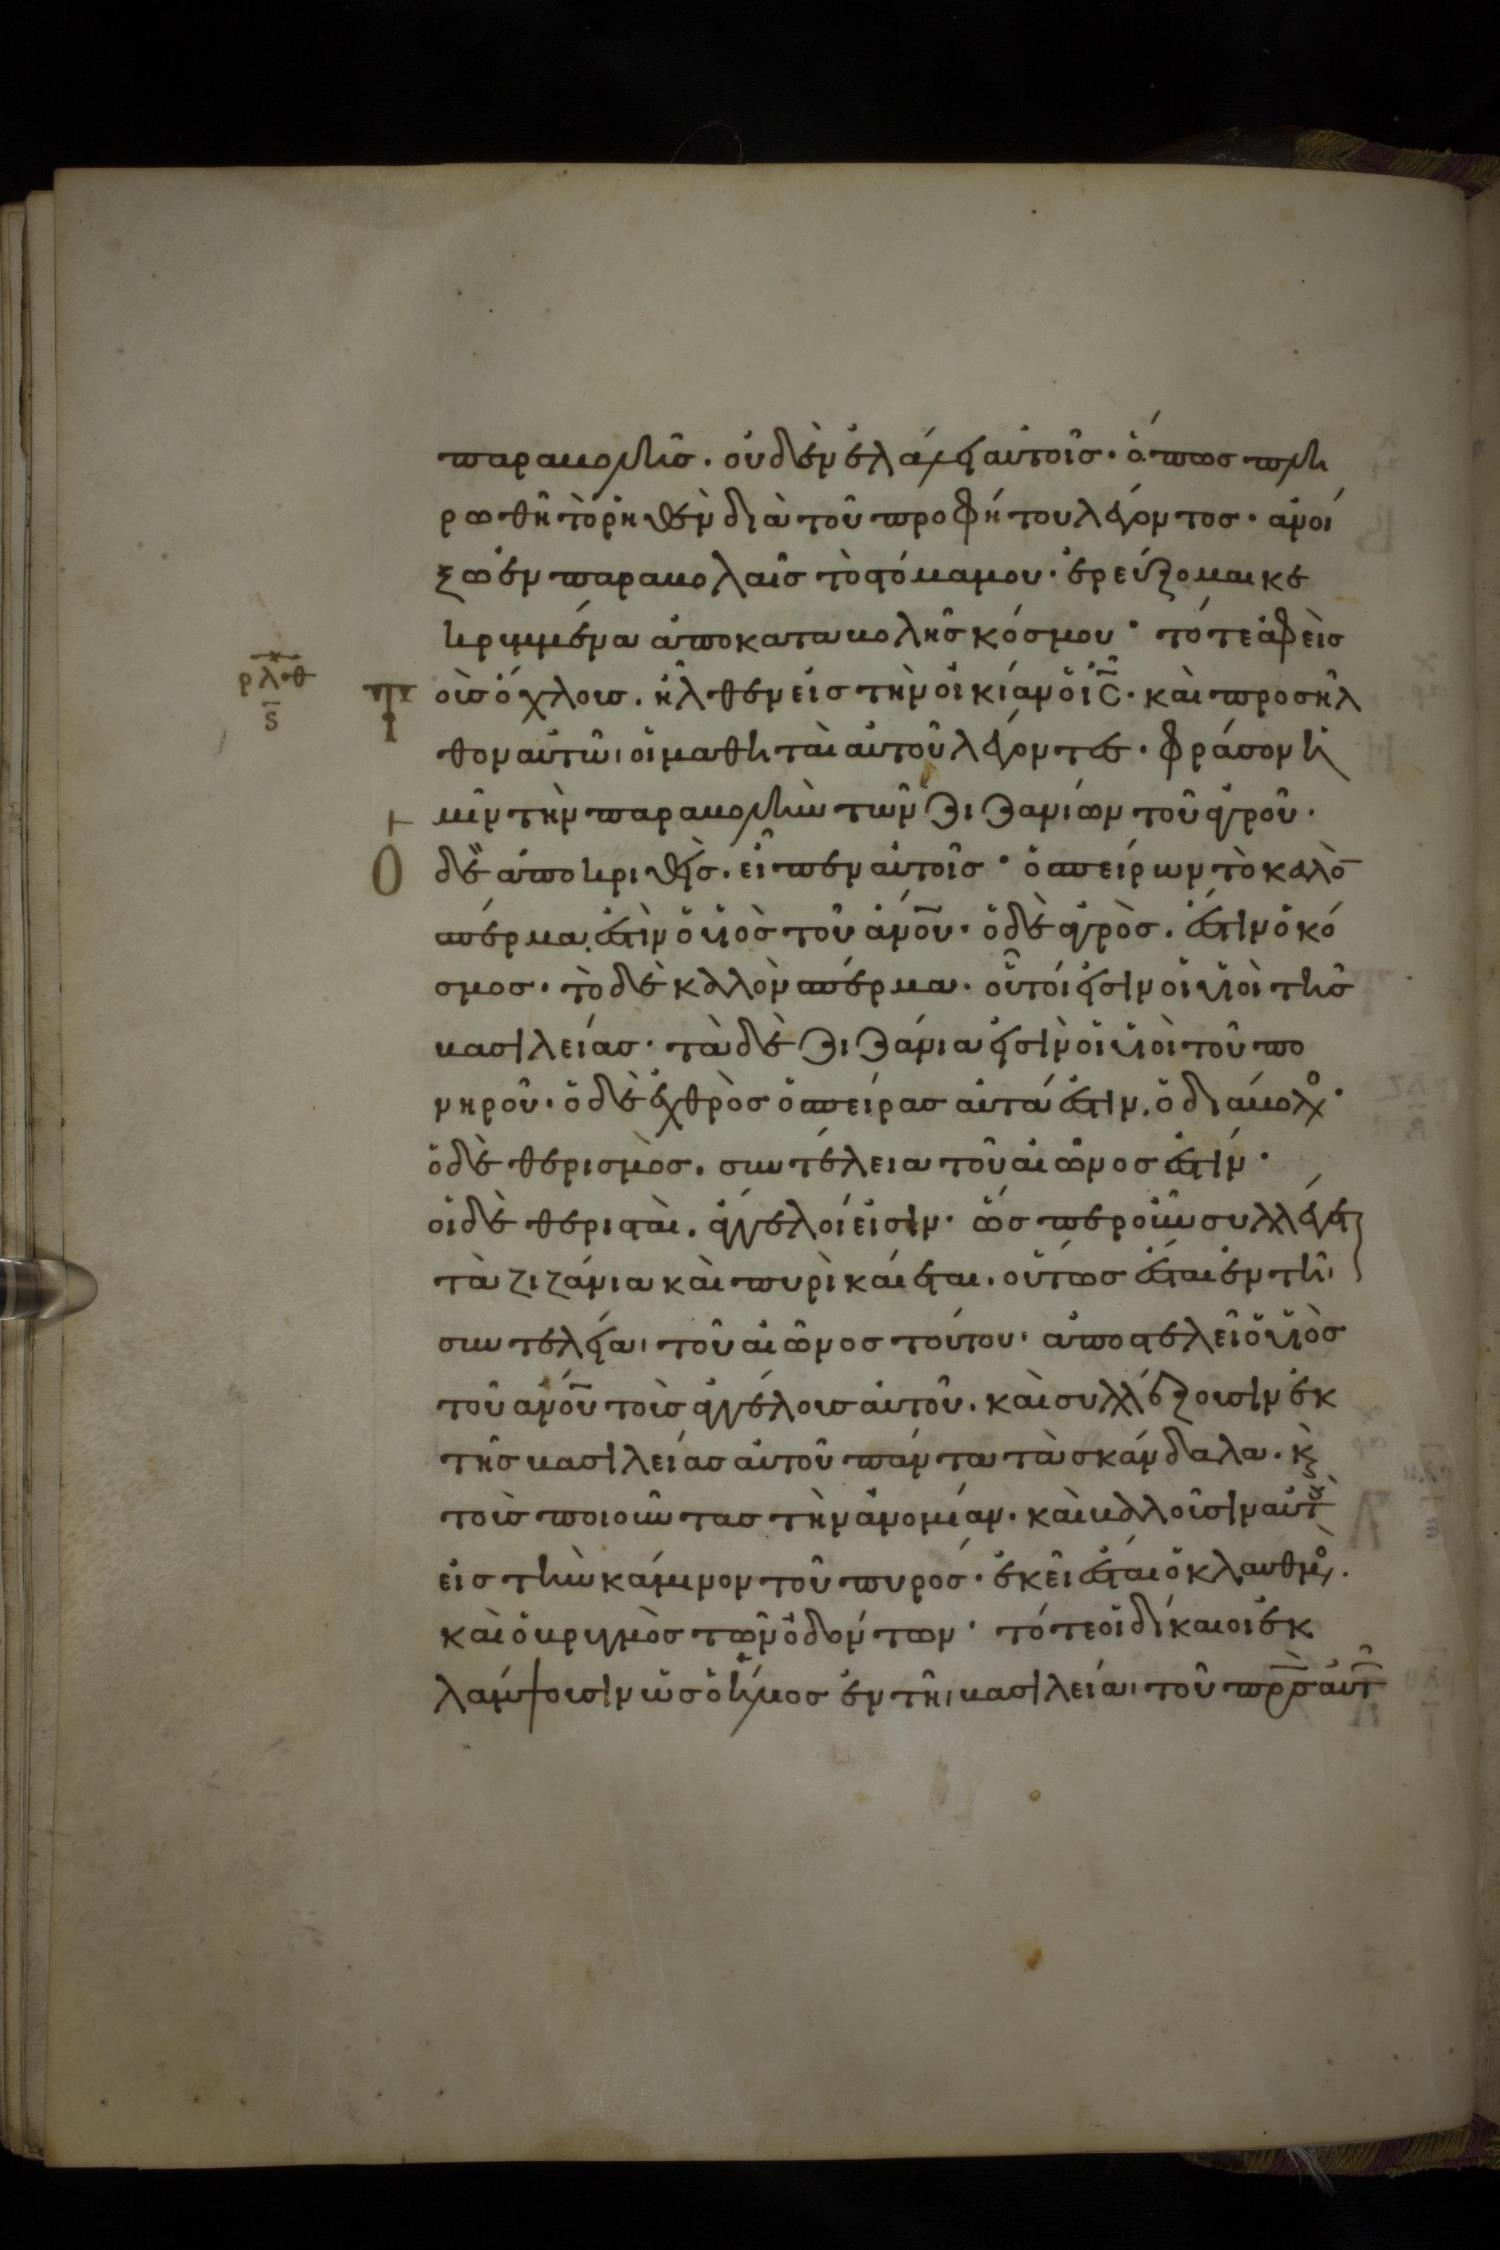 παραβολῆς. οὐδὲν ἐλάλει αὐτοῖς. ὅπως πλη
ρωθῆ τὸ ῥηθὲν διὰ τοῦ προφήτου λέγοντος. ἀνοί
ξω ἐν παραβολαῖς τὸ στόμα μου. ἐρεύξομαι κε
κρυμμένα ἀπο καταβολῆς κόσμου· τότε ἀφεὶς
ρλθ
ς
Τ οὺς ὄχλους. ἦλθεν εἰς τὴν οἰκίαν ὁ ις̅. καὶ προσῆλ
θον αὐτῶι οἱ μαθηταὶ αὐτοῦ λέγοντες. φράσον ἡ
μῖν τὴν παραβολὴν τῶν ζιζανίων τοῦ ἀγροῦ.
Ο δὲ ἀποκριθεὶς. εἶπεν αὐτοῖς· ὁ σπείρων τὸ καλὸ̅
σπέρμα. ἐστὶν ὁ υἱὸς τοῦ ἀν̅ου. ὁ δὲ ἀγρὸς. ἐστιν ὁ κό
σμος. τὸ δὲ καλὸν σπέρμα. οὗτοί εἰσιν οἱ υἱοὶ τῆς
βασιλείας. τὰ δὲ ζιζάνια εἰσὶν οἱ υἱοὶ τοῦ πο
νηροῦ. ὁ δὲ ἐχθρὸς ὁ σπείρας αὐτά ἐστιν. ὁ διάβολο.
ὁ δὲ θερισμὸς. συντέλεια τοῦ αἰῶνος ἐστίν.
οἱ δὲ θερισταὶ. ἄγγελοί εἰσιν. ὥσπερ οὖν συλλέγεται
τὰ ζιζάνια καὶ πυρὶ καίεται. οὕτως ἔσται ἐν τῆι
συντελείαι τοῦ αἰῶνος τούτου. ἀποστελεῖ ὁ υἱὸς
τοῦ ἀν̅ου τοὺς ἀγγέλους αὐτοῦ. καὶ συλλέξουσιν ἐκ
τῆς βασιλείας αὐτοῦ πάντα τὰ σκάνδαλα. κ̀
τοὺς ποιοῦντας τὴν ἀνομίαν. καὶ βαλοῦσιν αὐτοὺ
εἰς τὴν κάμινον τοῦ πυρός. ἐκεῖ ἔσται ὁ κλαυθμο.
καὶ ὁ βρυγμὸς τῶν ὀδόντων· τότε οἱ δίκαιοι ἐκ
λάμψουσιν ὡς ὁ ἥλιος ἐν τῆι βασιλείαι τοῦ πρ̅ς αὐτ̅